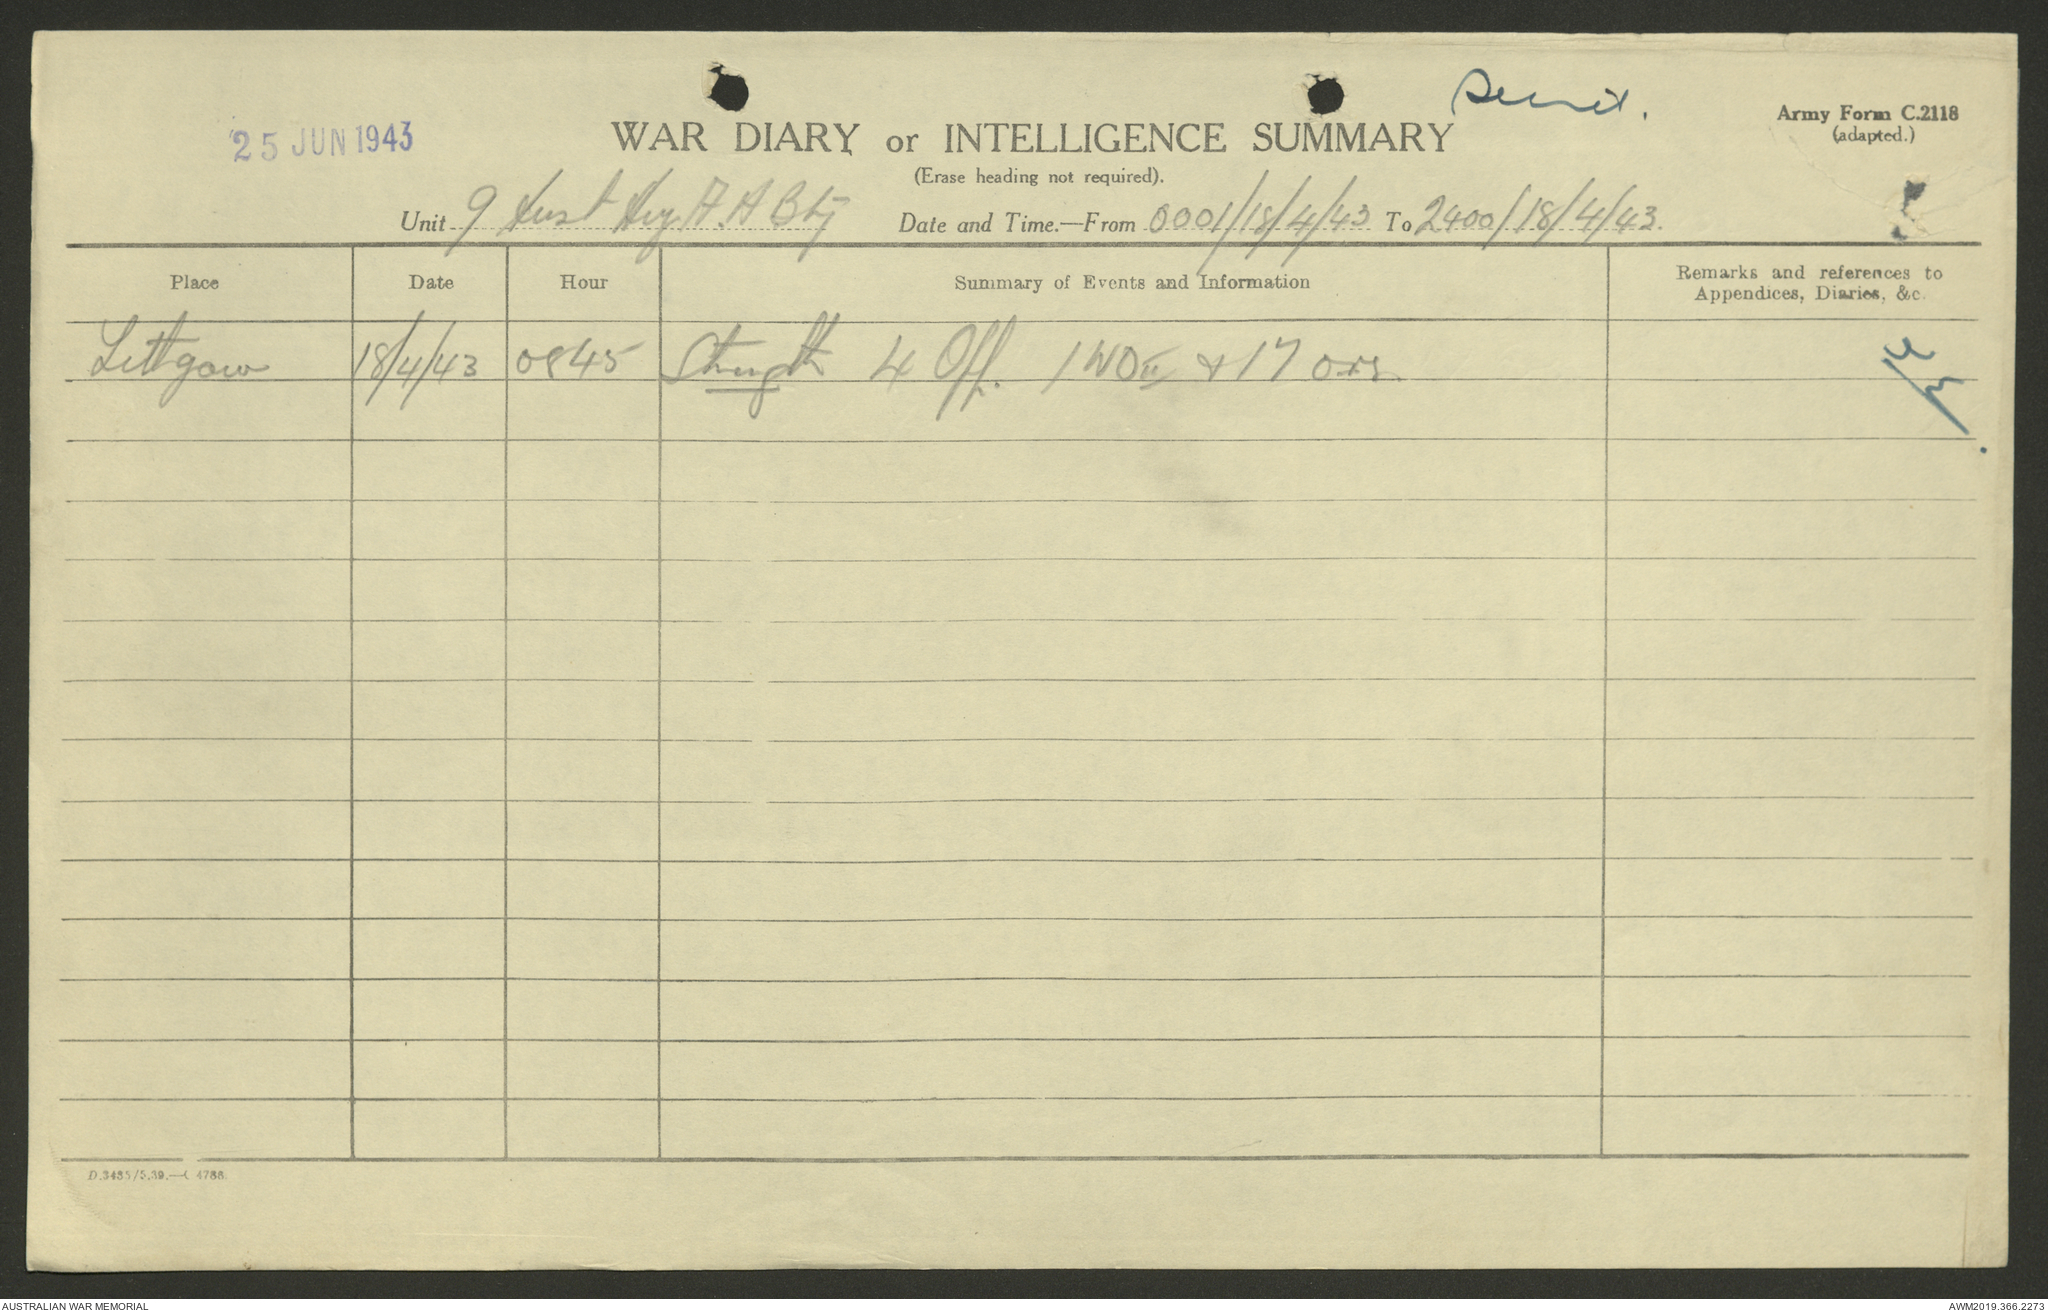 Secret.
Army Form C.2118
(adapted.)
25 JUN 1943
WAR DIARY or INTELLIGENCE SUMMARY
(Erase heading not required).
Unit 9 Aust Hvy A.A Bty Date and Time.—From 0001/18/4/43 To 2400/18/4/43.
Place Date Hour Summary of Events and Information Remarks and references to
Appendices, Diaries, &c.
Lithgow 18/4/43 0845 Strength 4 Off. 1 WOII & 17 ors.
AUSTRALIAN WAR MEMORIAL
AWM2019.366.2273